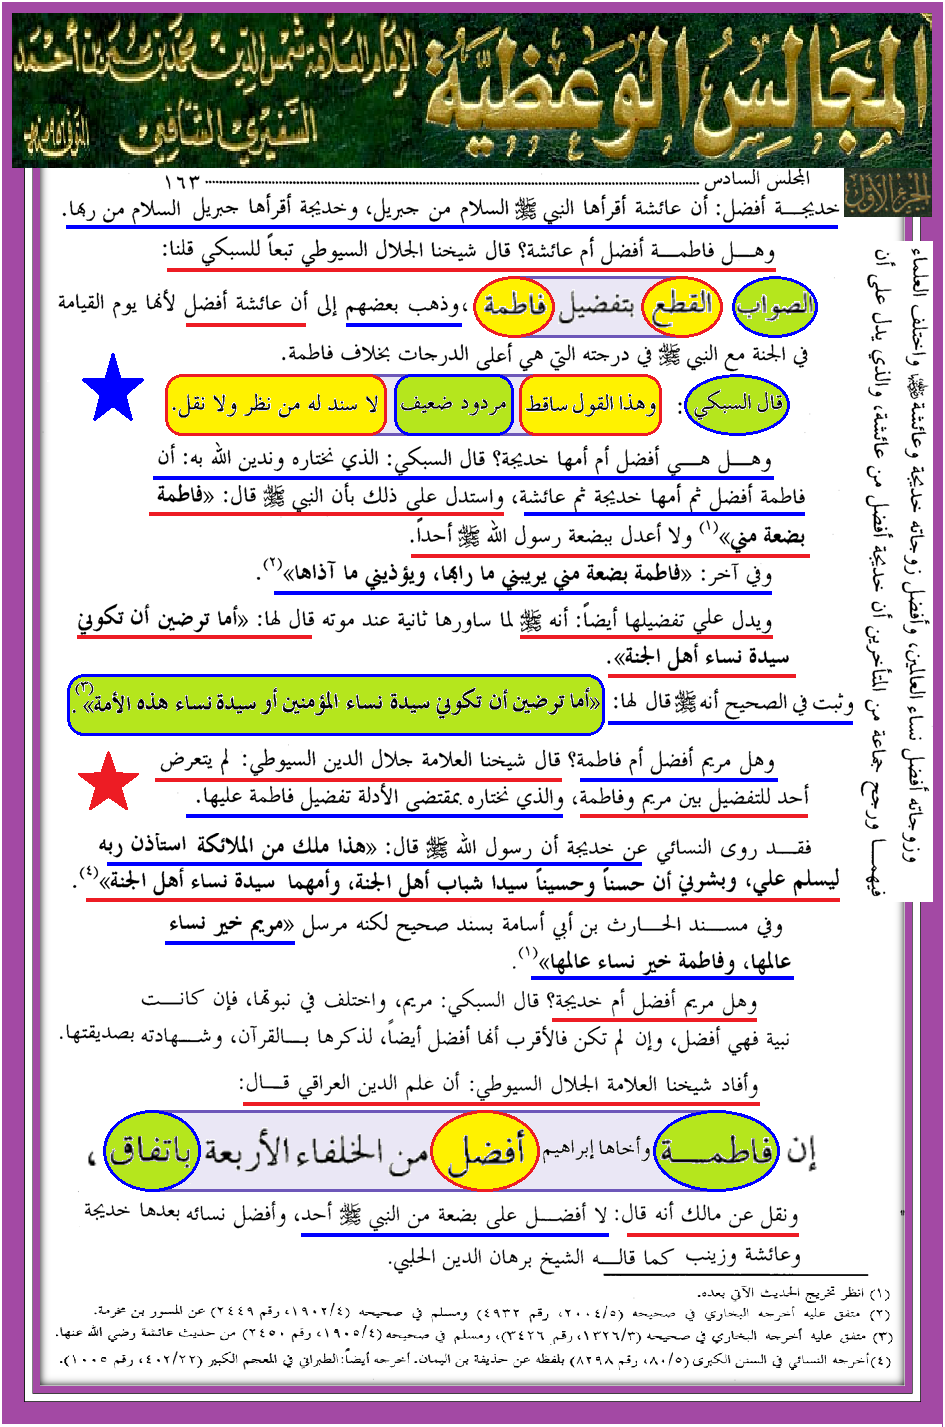 المجالس الوعظية
الإمام العلامة شمس الدين محمد بن عمر بن أحمد
السفيري الشافعي
المتوفى ٩٥٦ هـ
الجزء الأول
المجلس السادس ١٦٣
وزوجاته أفضل نساء العالمين، وأفضل زوجاته خديجة وعائشة ﷺ واختلف العلماء
فيهما ورجح جماعة من المتأخرين أن خديجة أفضل من عائشة، والذي يدل على أن
خديجة أفضل: أن عائشة أقرأها النبي ﷺ السلام من جبريل، وخديجة أقرأها جبريل السلام من ربها.
وهل فاطمة أفضل أم عائشة؟ قال شيخنا الجلال السيوطي تبعاً للسبكي قلنا:
الصواب القطع بتفضيل فاطمة، وذهب بعضهم إلى أن عائشة أفضل لأنها يوم القيامة
في الجنة مع النبي ﷺ في درجته التي هي أعلى الدرجات بخلاف فاطمة.
قال السبكي: وهذا القول ساقط مردود ضعيف لا سند له من نظر ولا نقل.
وهل هي أفضل أم أمها خديجة؟ قال السبكي: الذي نختاره وندين الله به: أن
فاطمة أفضل ثم أمها خديجة ثم عائشة، واستدل على ذلك بأن النبي ﷺ قال: «فاطمة
بضعة مني»(١) ولا أعدل ببضعة رسول الله ﷺ أحداً.
وفي آخر: «فاطمة بضعة مني يريبني ما رابها، ويؤذيني ما آذاها»(٢).
ويدل علي تفضيلها أيضاً: أنه ﷺ لما ساورها ثانية عند موته قال لها: «أما ترضين أن تكوني
سيدة نساء أهل الجنة».
وثبت في الصحيح أنه ﷺ قال لها: «أما ترضين أن تكوني سيدة نساء المؤمنين أو سيدة نساء هذه الأمة»(٣).
وهل مريم أفضل أم فاطمة؟ قال شيخنا العلامة جلال الدين السيوطي: لم يتعرض
أحد للتفضيل بين مريم وفاطمة، والذي نختاره بمقتضى الأدلة تفضيل فاطمة عليها.
فقد روى النسائي عن خديجة أن رسول الله ﷺ قال: «هذا ملك من الملائكة استأذن ربه
ليسلم علي، وبشرني أن حسناً وحسيناً سيدا شباب أهل الجنة، وأمهما سيدة نساء أهل الجنة»(٤).
وفي مسند الحارث بن أبي أسامة بسند صحيح لكنه مرسل «مريم خير نساء
عالمها، وفاطمة خير نساء عالمها»(١).
وهل مريم أفضل أم خديجة؟ قال السبكي: مريم، واختلف في نبوتها، فإن كانت
نبية فهي أفضل، وإن لم تكن فالأقرب أنها أفضل أيضاً، لذكرها بالقرآن، وشهادته بصديقتها.
وأفاد شيخنا العلامة الجلال السيوطي: أن علم الدين العراقي قال:
إن فاطمة وأخاها إبراهيم أفضل من الخلفاء الأربعة باتفاق،
ونقل عن مالك أنه قال: لا أفضل على بضعة من النبي ﷺ أحد، وأفضل نسائه بعدها خديجة
وعائشة وزينب كما قاله الشيخ برهان الدين الحلبي.
(١) انظر تخريج الحديث الآتي بعده.
(٢) متفق عليه أخرجه البخاري في صحيحه (٢٠٠٤/٥، رقم ٤٩٣٢) ومسلم في صحيحه (١٩٠٢/٤، رقم ٢٤٤٩) عن المسور بن مخرمة.
(٣) متفق عليه أخرجه البخاري في صحيحه (١٣٢٦/٣، رقم ٣٤٢٦)، ومسلم في صحيحه (١٩٠٥/٤، رقم ٢٤٥٠) من حديث عائشة رضي الله عنها.
(٤) أخرجه النسائي في السنن الكبرى (٨٠/٥، رقم ٨٢٩٨) بلفظه عن حذيفة بن اليمان. أخرجه أيضاً: الطبراني في المعجم الكبير (٤٠٢/٢٢، رقم ١٠٠٥).